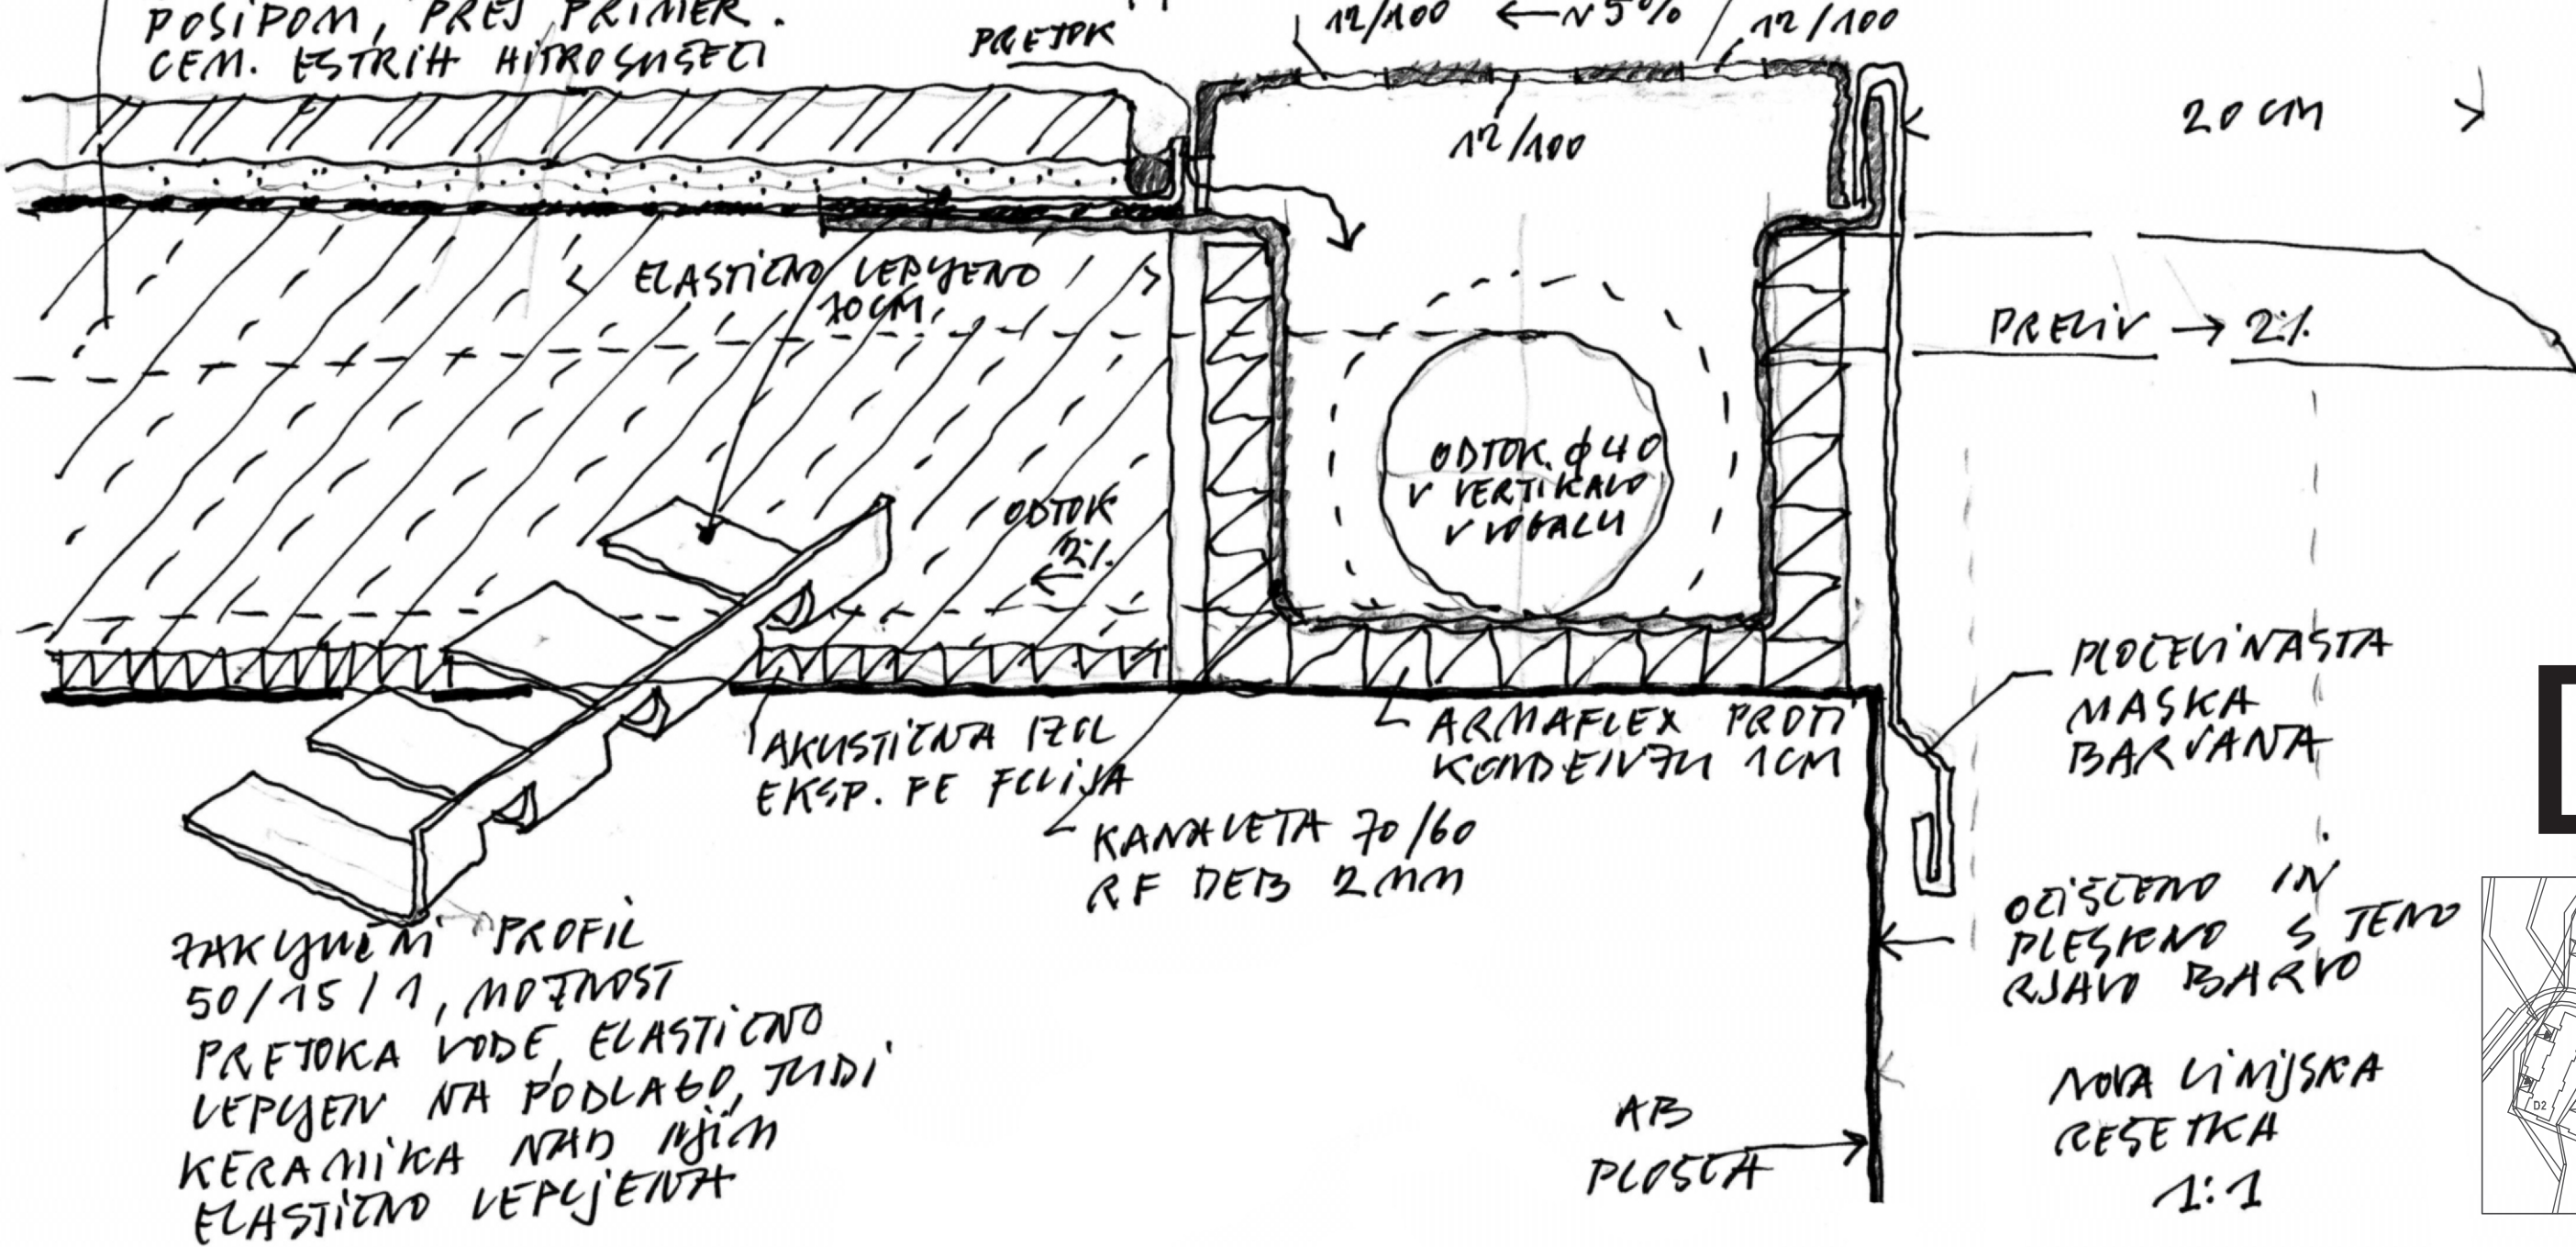 POSIPOM, PREJ PRIMER.
CEM. ESTRIH HITROSUŠEČI
PRETOK
12/100 ← ~ 5%
12/100
12/100
20 cm
ELASTIČNO LEPLJENO
10 CM.
PRELIV → 2%
ODTOK. ϕ 40
V VERTIKALO
V VOGALU
ODTOK
2%
←
PLOČEVINASTA
MASKA
BARVANA
AKUSTIČNA IZOL
EKSP. PE FOLIJA
ARMAFLEX PROTI
KONDENZU 1CM
KANALETA 70/60
RF DEB 2 mm
OČIŠČENO IN
PLESKNO S TEMO
RJAVO BARVO
ZAKLJUČNI PROFIL
50/15/1, MOŽNOST
PRETOKA VODE, ELASTIČNO
LEPLJEN NA PODLAGO, TUDI
KERAMIKA NAD NJIM
ELASTIČNO LEPLJENA
AB
PLOŠČA
NOVA LINIJSKA
REŠETKA
1:1
D2